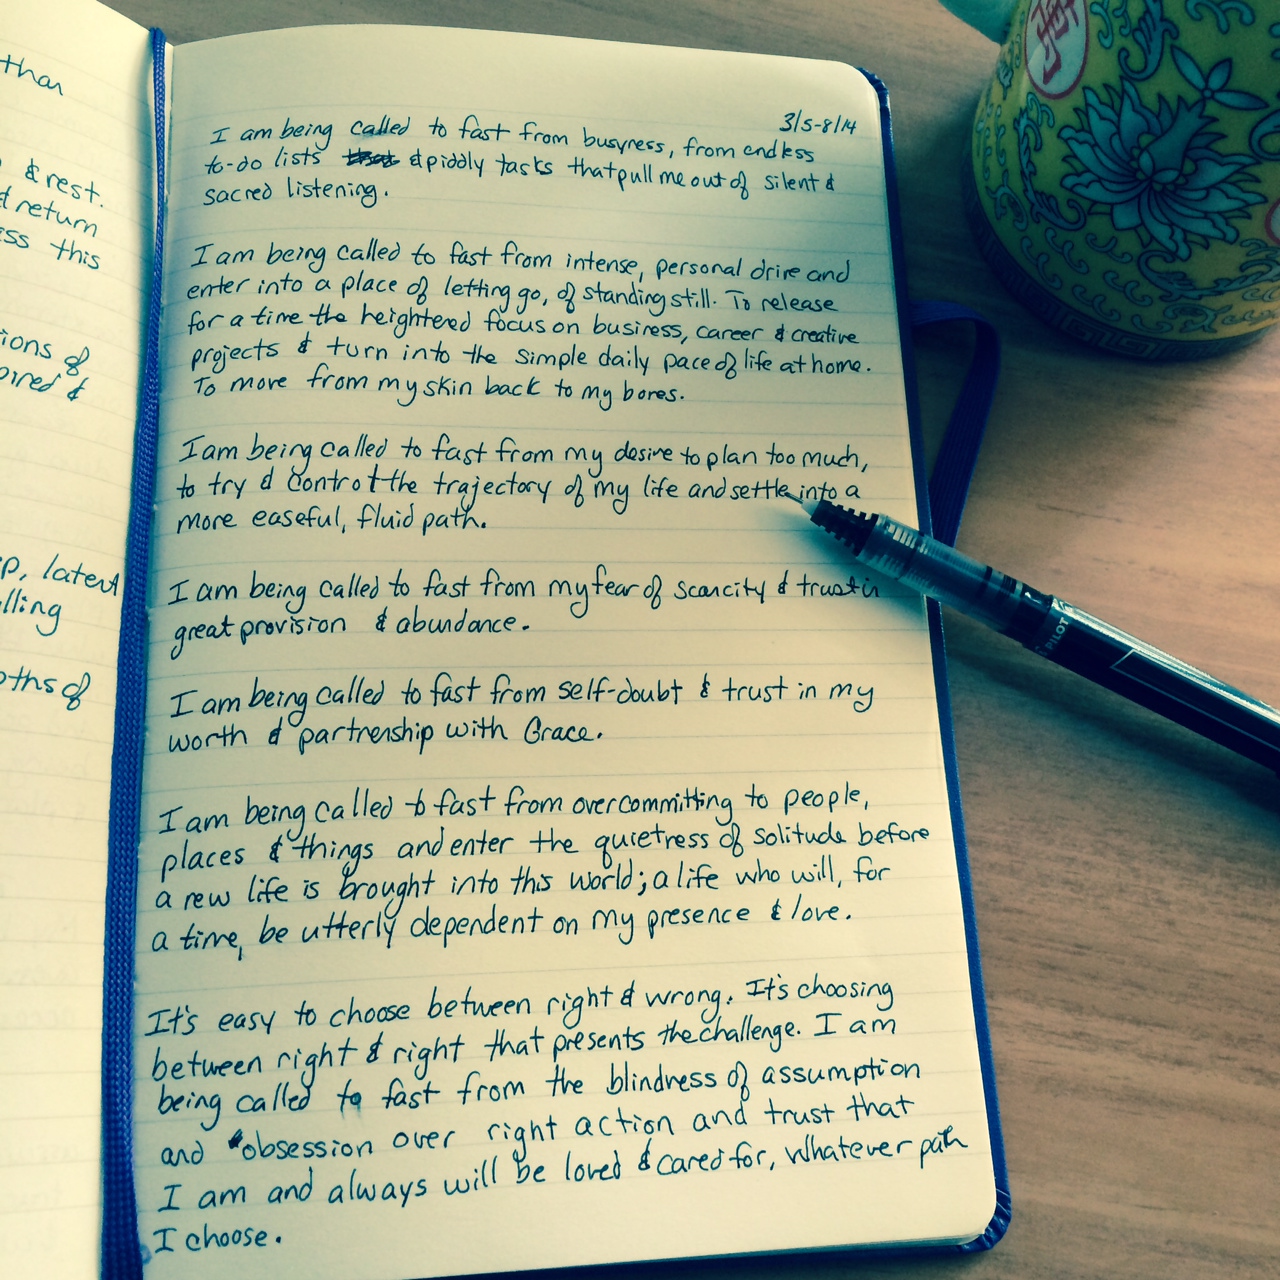 than
& rest.
return
ss this
ions of
pired &
p, latent
lling
pths of
3/5-8/14
I am being called to fast from busyness, from endless
to-do lists & piddly tasks that pull me out of silent &
sacred listening.
I am being called to fast from intense, personal drive and
enter into a place of letting go, of standing still. To release
for a time the heightened focus on business, career & creative
projects & turn into the simple daily pace of life at home.
To move from my skin back to my bones.
I am being called to fast from my desire to plan too much,
to try & control the trajectory of my life and settle into a
more easeful, fluid path.
I am being called to fast from my fear of scarcity & trust in
great provision & abundance.
I am being called to fast from self-doubt & trust in my
worth & partnership with Grace.
I am being called to fast from overcommitting to people,
places & things and enter the quietness of solitude before
a new life is brought into this world; a life who will, for
a time, be utterly dependent on my presence & love.
It's easy to choose between right & wrong. It's choosing
between right & right that presents the challenge. I am
being called to fast from the blindness of assumption
and obsession over right action and trust that
I am and always will be loved & cared for, whatever path
I choose.
PILOT